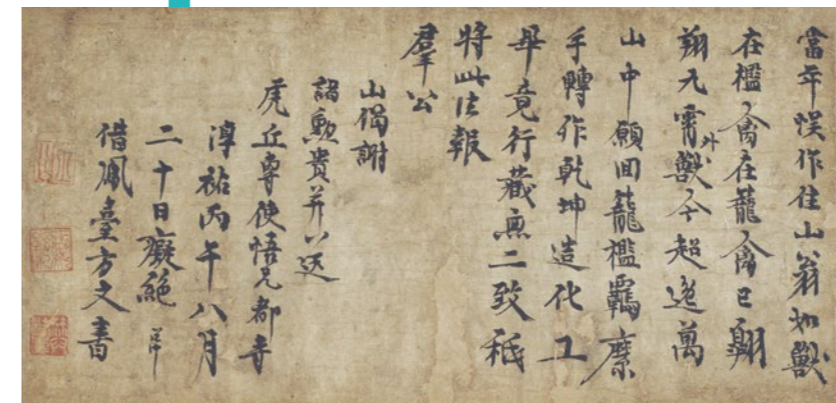 當年悞作住山翁如獸
在檻禽在籠禽已翱
翔九霄外獸今超逸萬
山中願回籠檻羈縻
手轉作乾坤造化工
畢竟行藏無二致秖
將此法報
羣公
山偈謝
諸勳貴并以送
虎丘専使悟兄都寺
淳祐丙午八月
二十日癡絶道冲
借鳳臺方丈書